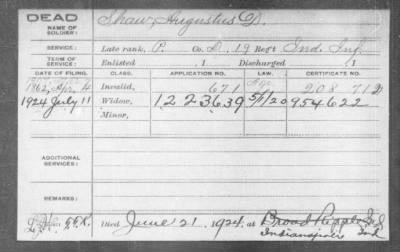 DEAD
NAME OF SOLDIER: Shaw, Augustus D.
SERVICE: Late rank, P. Co. D, 19 Reg't Ind. Inf.
TERM OF SERVICE: Enlisted , 1 Discharged , 1
DATE OF FILING. CLASS. APPLICATION NO. LAW. CERTIFICATE NO.
1862, Apr. 4 Invalid, 671 208 712
1924 July 11 Widow, 1223639 5/1/20 954622
Minor,
ADDITIONAL SERVICES:
REMARKS:
Died June 21, 1924, at Broad Ripple Ind
Indianapolis Ind